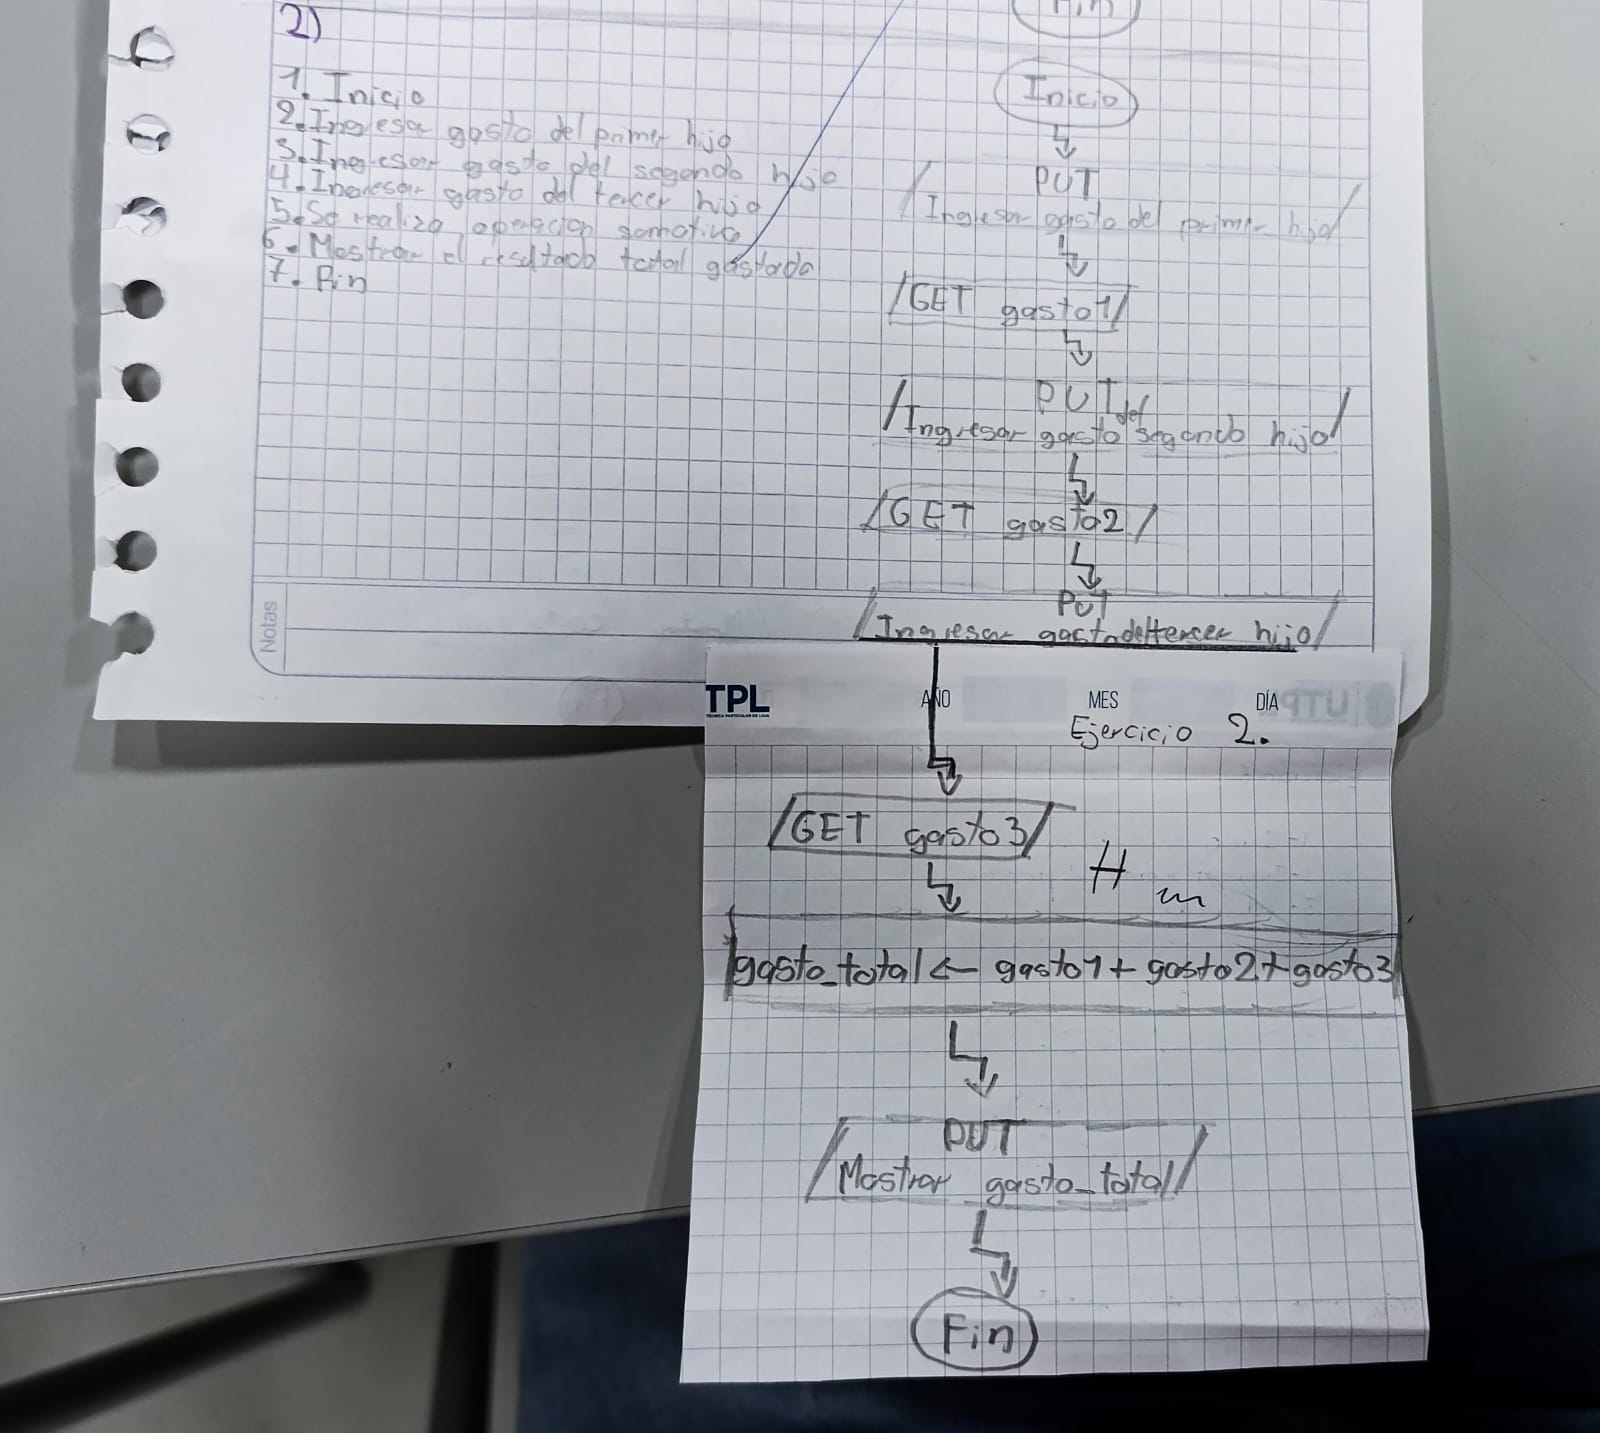 2)
1. Inicio
2. Ingresar gasto del primer hijo
3. Ingresar gasto del segondo hijo
4. Ingresar gasto del tercer hijo
5. Se realiza operacion
6. Mostrar el resultado total gastado
7. Fin
Fin
Inicio
PUT
Ingresar gasto del primer hijo
GET gasto1
PUT
Ingresar gasto del segondo hijo
GET gasto2
PUT
Ingresar gasto del tercer hijo
Notas
TPL
TÉCNICA PARTICULAR DE LOJA
AÑO MES DÍA
UTPL
Ejercicio 2.
GET gasto3
gasto_total ← gasto1 + gasto2 + gasto3
PUT
Mostrar gasto_total
Fin